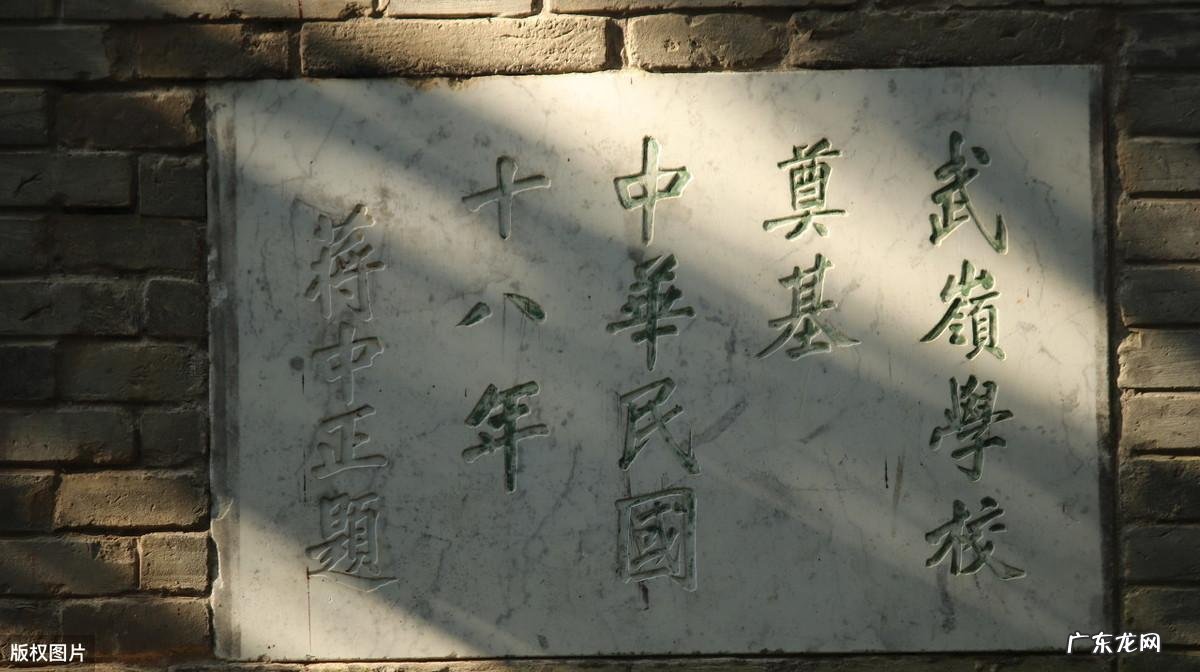 武嶺學校
奠基
中華民國
十八年
蔣中正題
版权图片
广东龙网